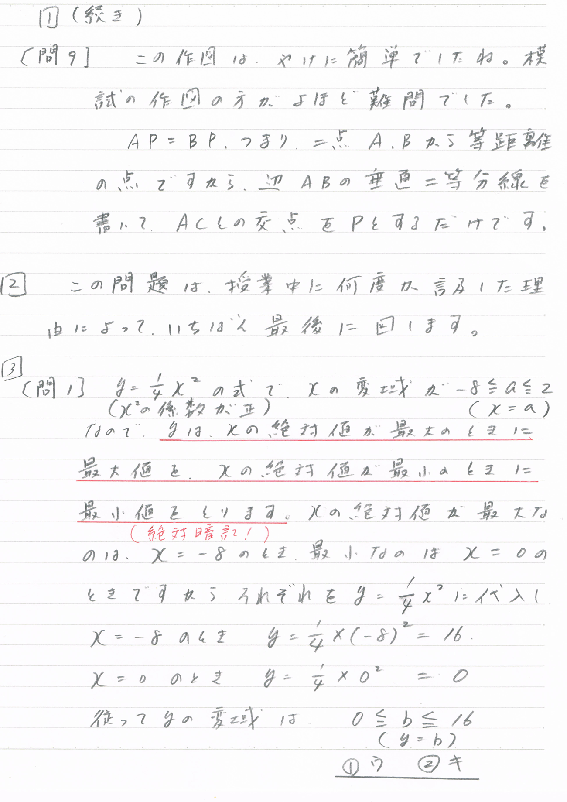 1 (続き)
[問9] この作図は、やけに簡単でしたね。模
試の作図の方がよほど難問でした。
AP=BP、つまり、二点A、Bから等距離
の点ですから、辺ABの垂直二等分線を
書いて、ACとの交点をPとするだけです。
2 この問題は、授業中に何度か言及した理
由によって、いちばん最後に回します。
3
[問1] y=1/4x²の式で、xの変域が-8≦a≦2
(x²の係数が正) (x=a)
なので、yは、xの絶対値が最大のときに
最大値を、xの絶対値が最小のときに
最小値をとります。xの絶対値が最大な
(絶対暗記!)
のは、x=-8のとき、最小なのはx=0の
ときですから、それぞれをy=1/4x²に代入し
x=-8のとき y=1/4×(-8)²=16.
x=0のとき y=1/4×0²=0
従ってyの変域は 0≦b≦16
(y=b)
①ウ ②キ